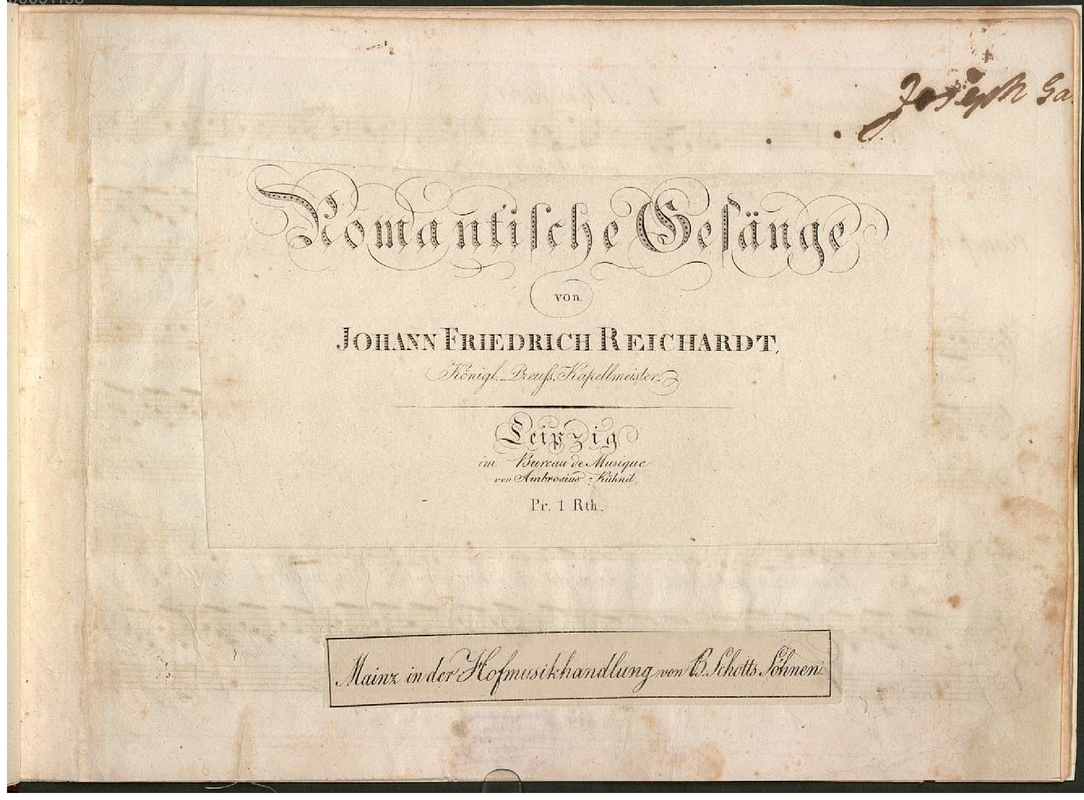 Joseph Ga
Romantiſche Geſänge
von
JOHANN FRIEDRICH REICHARDT,
Königl. Preuſs. Kapellmeister.
Leipzig
im Bureau de Musique
von Ambrosius Kühnel
Pr. 1 Rth.
Mainz in der Hofmusikhandlung von B. Schotts Söhnen.